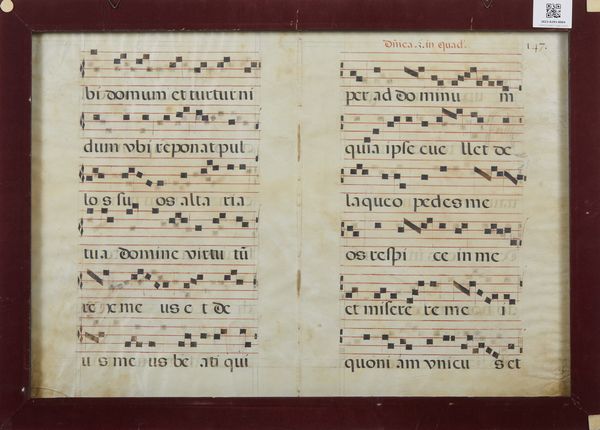 bi domum et turtur ni
dum vbi reponat pul
los su os alta ria
tua domine virtu tū
re x me us e t de
u s me us be ati qui
Dn̄ica .3. in quad.
147.
per ad do minū m
quia ipse eue llet de
laqueo pedes me
os respi ce in me
et misere re me i
quoni am vnicu s et